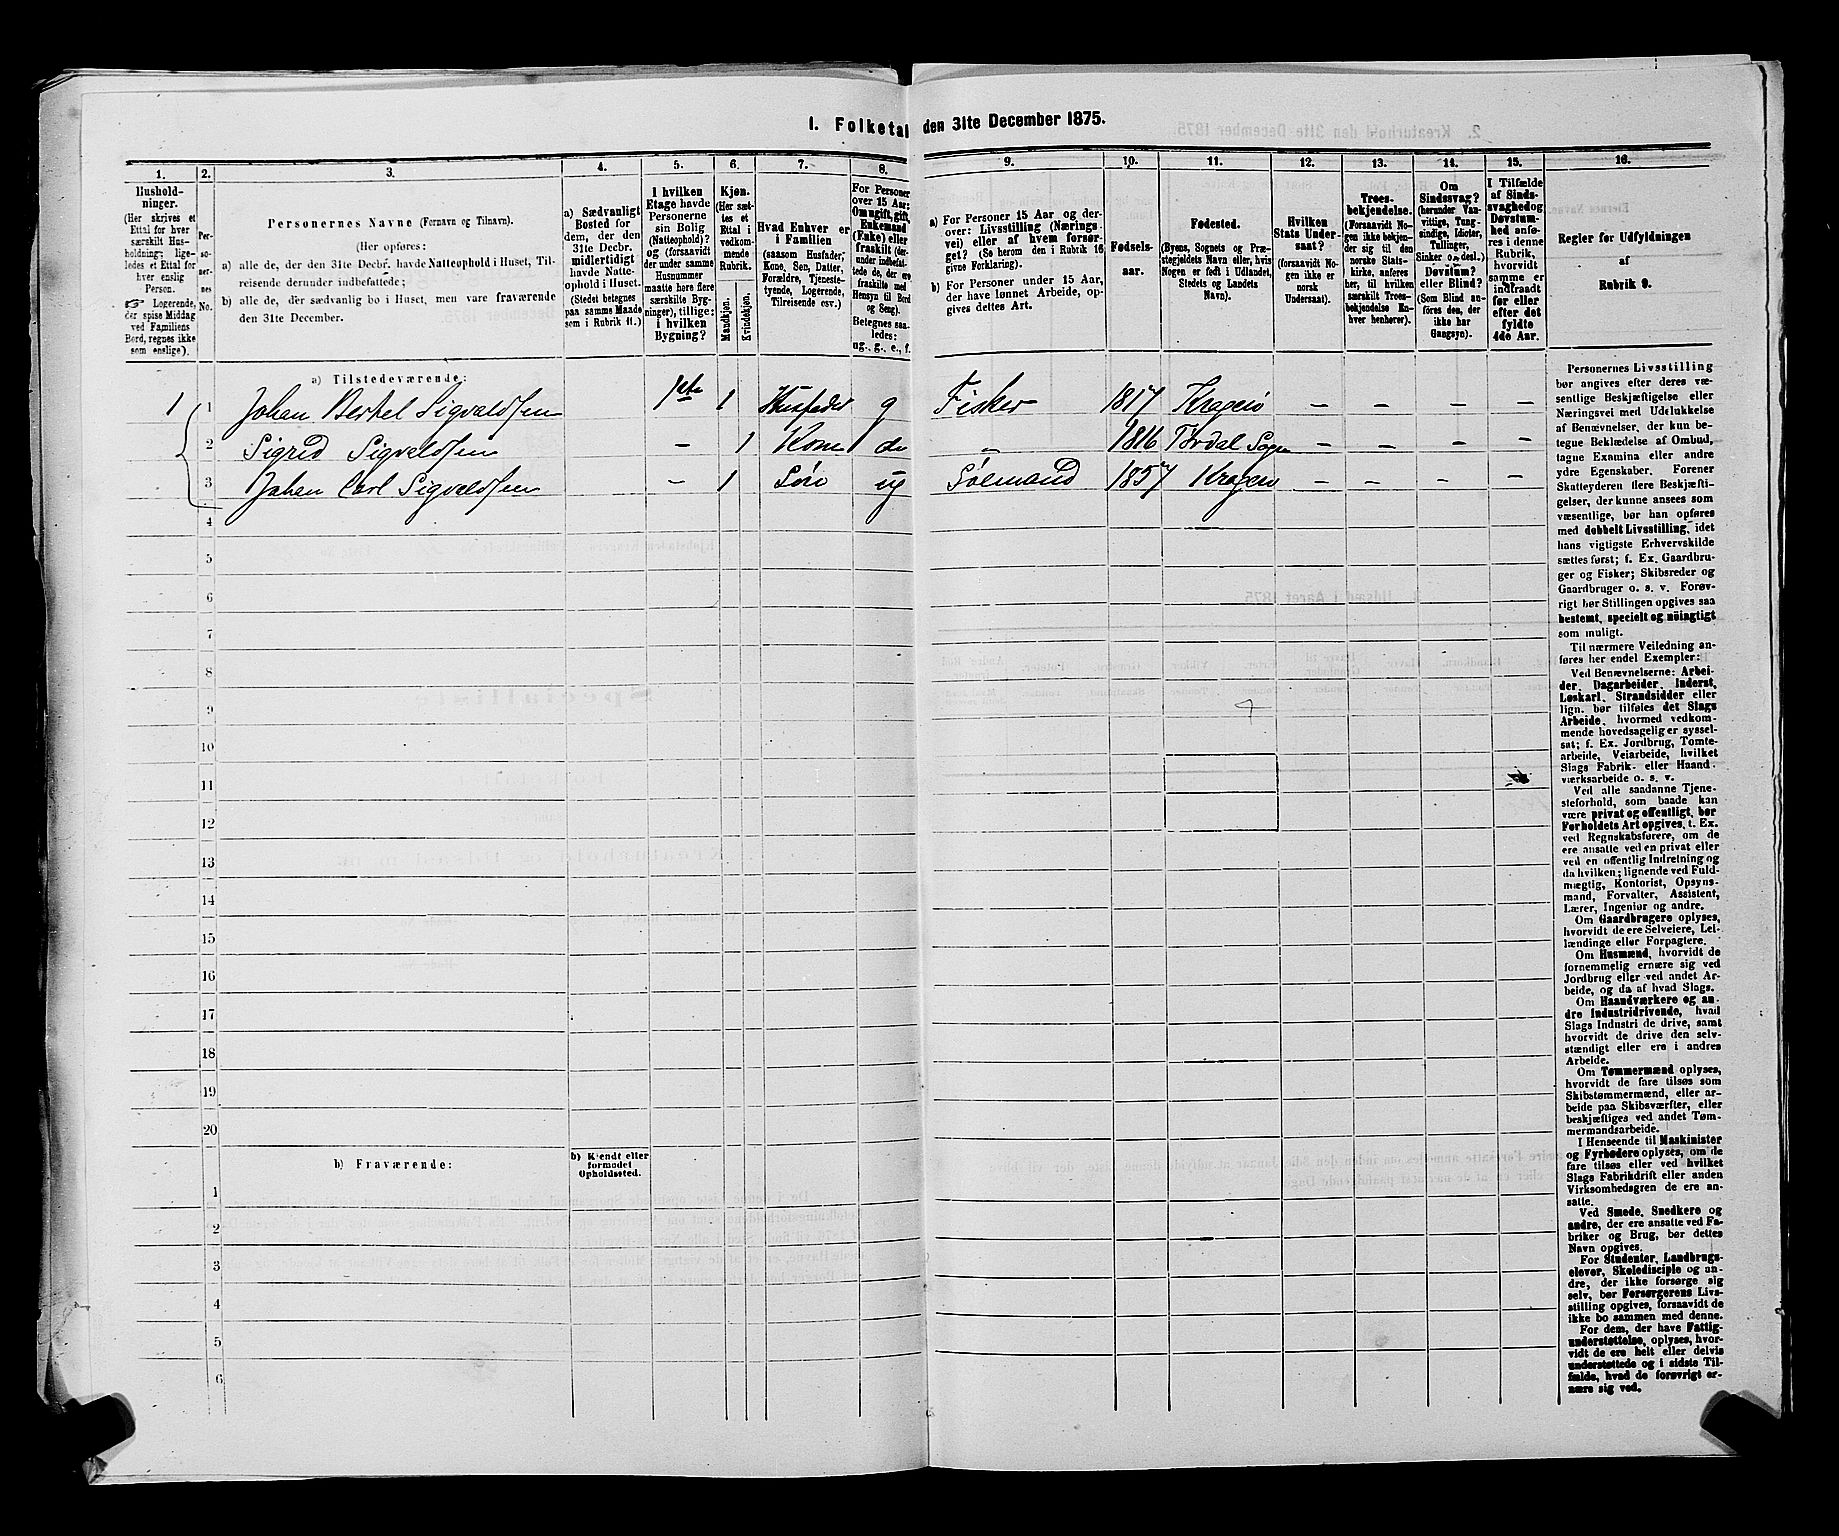 1. Folketal den 31te December 1875.
1. 2. 3. 4. 5. 6. 7. 8. 9. 10. 11. 12. 13. 14. 15. 16.
Hushold-
ninger.
(Her skrives et
Ettal for hver
særskilt Hus-
holdning; lige-
ledes et Ettal for
hver enslig
Person.
☞ Logerende,
der spise Middag
ved Familiens
Bord, regnes ikke
som enslige).
Per-
so-
ner-
nes
No.
Personernes Navne (Fornavn og Tilnavn).
(Her opføres:
a) alle de, der den 31te Decbr. havde Natteophold i Huset, Til-
reisende derunder indbefattede;
b) alle de, der sædvanlig bo i Huset, men vare fraværende
den 31te December.
a) Sædvanligt
Bosted for
dem, der den
31te Decbr.
midlertidigt
havde Natte-
ophold i Huset.
(Stedet betegnes
paa samme Maade
som i Rubrik 11.)
I hvilken
Etage havde
Personerne
sin Bolig
(Natteophold)?
og (forsaavidt
der under samme
Husnummer
maatte høre flere
særskilte Byg-
ninger), tillige:
i hvilken
Bygning?
Kjøn.
(Her sæt-
tes et
Ettal i
vedkom-
mende
Rubrik.
Mandkjøn.
Kvindekjøn.
Hvad Enhver er
i Familien
(saasom Husfader,
Kone, Søn, Datter,
Forældre, Tjeneste-
tyende, Logerende,
Tilreisende osv.)
For Personer
over 15 Aar:
Om ugift, gift,
Enkemand
(Enke) eller
fraskilt (der-
under indbefat-
tede de, der ere
fraskilte med
Hensyn til Bord
og Seng).
Betegnes saa-
ledes:
ug., g., e., f.
a) For Personer 15 Aar og der-
over: Livsstilling (Nærings-
vei) eller af hvem forsør-
get? (Se herom den i Rubrik 16
givne Forklaring).
b) For Personer under 15 Aar,
der have lønnet Arbeide, op-
gives dettes Art.
Fødsels-
aar.
Fødested.
(Byens, Sognets og Præ-
stegjeldets Navn eller, hvis
Nogen er født i Udlandet,
Stedets og Landets
Navn).
Hvilken
Stats Under-
saat?
(forsaavidt No-
gen ikke er
norsk
Undersaat).
Troes-
bekjendelse.
(Forsaavidt No-
gen ikke bekjen-
der sig til den
norske Stats-
kirke, anføres
her, til hvilken
særskilt Troes-
bekjendelse En-
hver henhører).
Om
Sindssvag?
(herunder Van-
vittige, Tung-
sindige, Idioter,
Tullinger,
Sinker o. desl.)
Døvstum?
eller Blind?
(Som Blind an-
føres den, der
ikke har
Gangsyn).
I Tilfælde
af Sinds-
svaghed og
Døvstum-
hed anfø-
res i denne
Rubrik,
hvorvidt
samme er
indtraadt
før eller
efter det
fyldte
4de Aar.
Regler for Udfyldningen
af
Rubrik 9.
a) Tilstedeværende:
1 1 Johan Bertel Sigvaldsen 1ste 1 Husfader g Fisker 1817 Kragerø – – – –
2 Sigrid Sigvaldsen – 1 Kone do „ 1816 Tørdal Sogn – – – –
3 Johan Carl Sigvaldsen – 1 Søn ug Sømand 1857 Kragerø – – – –
4
5
6
7
8
9
10
11
12
13
14
15
16
17
18
19
20
b) Fraværende:
b) Kjendt eller
formodet
Opholdssted.
1
2
3
4
5
6
Personernes Livsstilling
bør angives efter deres væ-
sentlige Beskjæftigelse eller
Næringsvei med Udelukkelse
af Benævnelser, der kun be-
tegne Beklædelse af Ombud,
tagne Examina eller andre
ydre Egenskaber. Forener
Skatteyderen flere Beskjæfti-
gelser, der kunne ansees som
væsentlige, bør han opføres
med dobbelt Livsstilling, idet
hans vigtigste Erhvervskilde
sættes først; f. Ex. Gaardbru-
ger og Fisker; Skibsreder og
Gaardbruger o. s. v. Forøv-
rigt bør Stillingen opgives saa
bestemt, specielt og nöiagtigt
som muligt.
Til nærmere Veiledning an-
føres her endel Exempler:
Ved Benævnelserne: Arbei-
der, Dagarbeider, Inderst,
Løskarl, Strandsidder eller
lign. bør tilføies det Slags
Arbeide, hvormed vedkom-
mende hovedsagelig er syssel-
sat; f. Ex. Jordbrug, Tomte-
arbeide, Veiarbeide, hvilket
Slags Fabrik- eller Haand-
værksarbeide o. s. v.
Ved alle saadanne Tjene-
steforhold, som baade kan
være privat og offentligt, bør
Forholdets Art opgives, t. Ex.
ved Regnskabsførere, om de
ere ansatte ved en privat eller
ved en offentlig Indretning og
da hvilken; lignende ved Fuld-
mægtig, Kontorist, Opsyns-
mand, Forvalter, Assistent,
Lærer, Ingeniør og andre.
Om Gaardbrugere oplyses,
hvorvidt de ere Selveiere, Lei-
lændinge eller Forpagtere.
Om Husmænd, hvorvidt de
fornemmelig ernære sig ved
Jordbrug eller ved andet Ar-
beide, og da af hvad Slags.
Om Haandværkere og an-
dre Industridrivende, hvad
Slags Industri de drive, samt
hvorvidt de drive den selv-
stændigt eller ere i andres
Arbeide.
Om Tømmermænd oplyses,
hvorvidt de fare tilsøs som
Skibstømmermænd, eller ar-
beide paa Skibsværfter, eller
beskjæftiges ved andet Tøm-
mermandsarbeide.
I Henseende til Maskinister
og Fyrbødere oplyses, om de
fare tilsøs eller ved hvilket
Slags Fabrikdrift eller anden
Virksomhedsgren de ere an-
satte.
Ved Smede, Snedkere og
andre, der ere ansatte ved Fa-
briker og Brug, bør dettes
Navn opgives.
For Studenter, Landbrugs-
elever, Skoledisciple og an-
dre, der ikke forsørge sig
selv, bør Forsørgerens Livs-
stilling opgives, forsaavidt de
ikke bo sammen med denne.
For dem, der have Fattig-
understøttelse, oplyses, hvor-
vidt de ere helt eller delvis
understøttede og i sidste Til-
fælde, hvad de forøvrigt er-
nære sig ved.